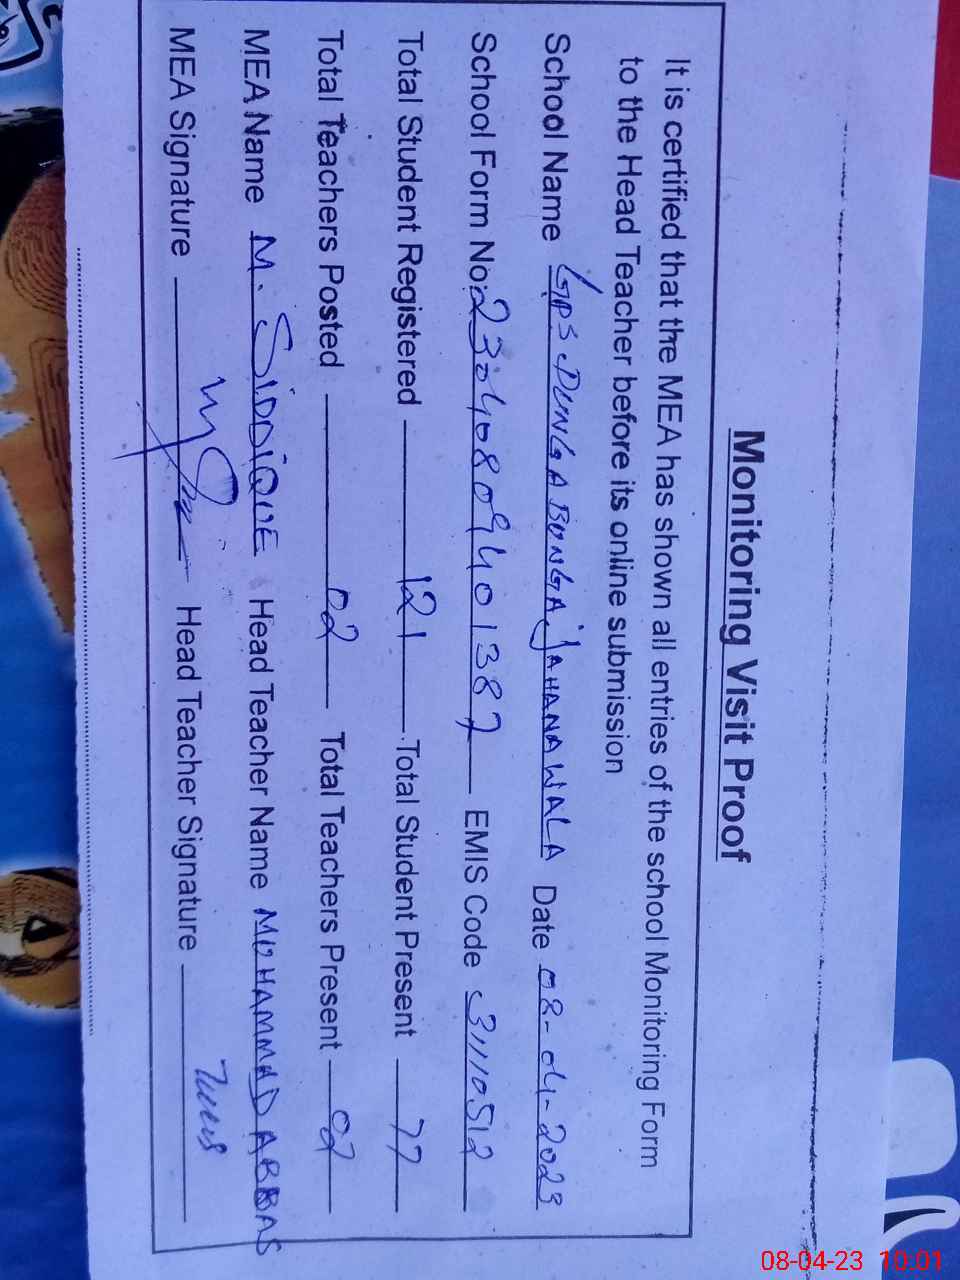 Monitoring Visit Proof
It is certified that the MEA has shown all entries of the school Monitoring Form
to the Head Teacher before its online submission
School Name GPS DUNGA BUNGA JAHANAWALA Date 08-04-2023
School Form No: 23040809401387 EMIS Code 31110512
Total Student Registered 121 Total Student Present 77
Total Teachers Posted 02 Total Teachers Present 02
MEA Name M. SIDDIQUE Head Teacher Name MUHAMMAD ABBAS
MEA Signature Head Teacher Signature
08-04-23 10:01